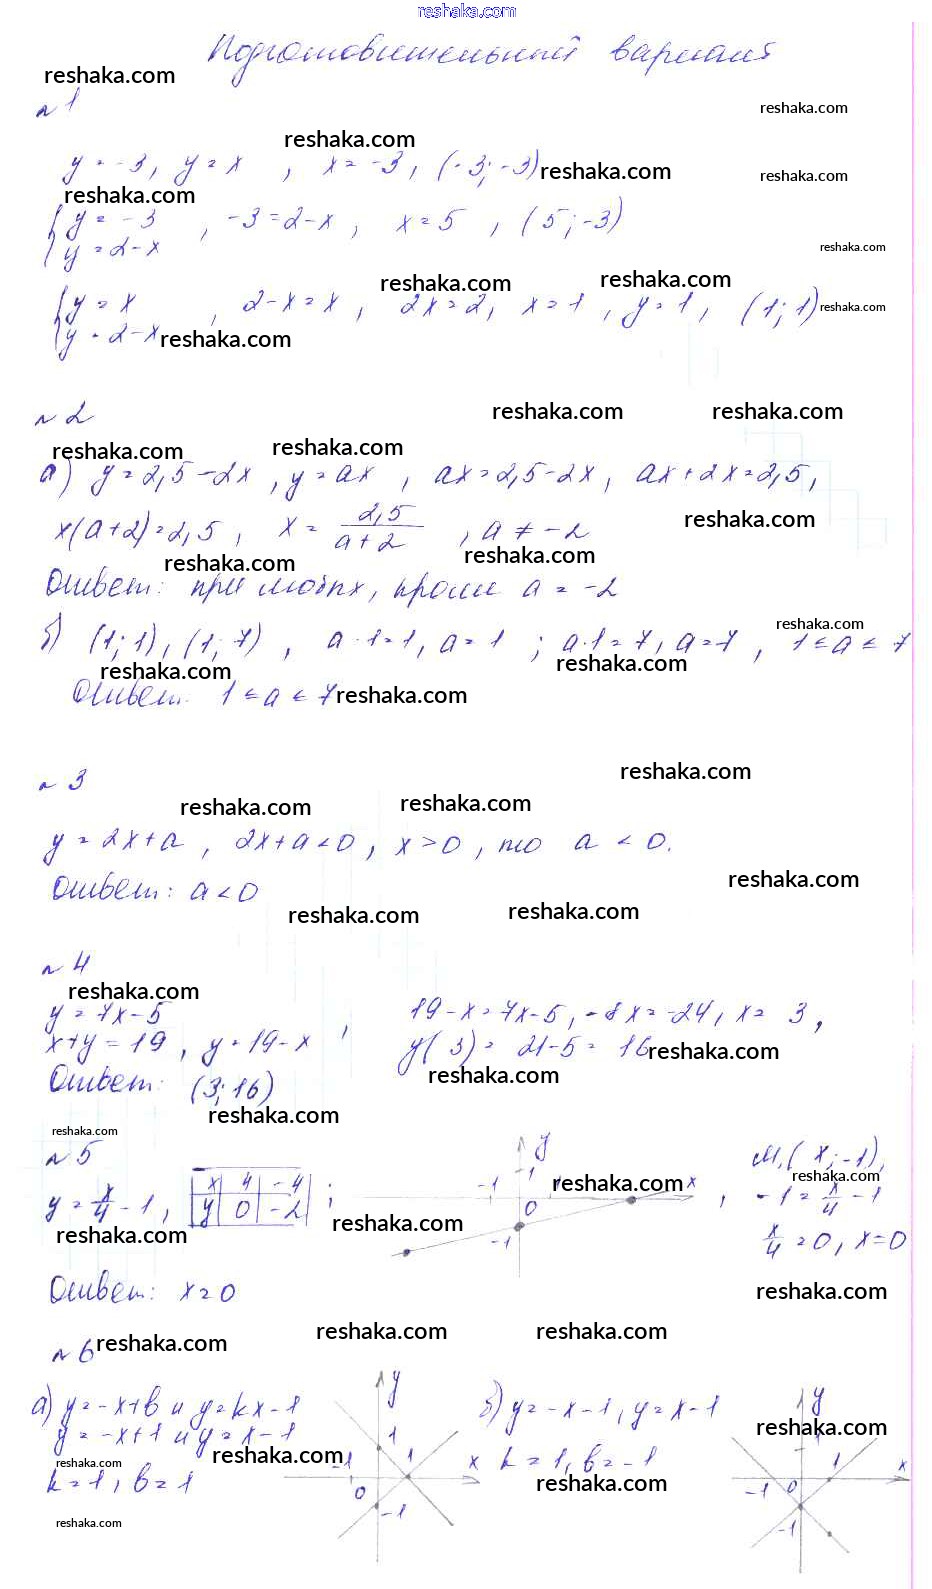 reshaka.com
Подготовительный вариант
reshaka.com
№1
reshaka.com
reshaka.com
y = -3, y = x , x = -3, (-3; -3) reshaka.com
reshaka.com
reshaka.com
{ y = -3 , -3 = 2-x , x = 5 , (5; -3)
y = 2-x
reshaka.com
reshaka.com reshaka.com
{ y = x , 2-x = x , 2x = 2, x = 1 , y = 1, (1; 1) reshaka.com
y = 2-x reshaka.com
№2
reshaka.com reshaka.com
reshaka.com reshaka.com
а) y = 2,5-2x , y = ax , ax = 2,5-2x, ax+2x = 2,5,
x(a+2) = 2,5 , x = 2,5/(a+2) , a ≠ -2
reshaka.com
reshaka.com reshaka.com
Ответ: при любых, кроме a = -2
reshaka.com
б) (1; 1), (1; 7) , a·1=1, a = 1 ; a·1=7, a=7 , 1 ≤ a ≤ 7
reshaka.com reshaka.com
Ответ: 1 ≤ a ≤ 7 reshaka.com
№3
reshaka.com
reshaka.com reshaka.com
y = 2x+a , 2x+a<0, x>0, то a < 0.
Ответ: a<0
reshaka.com
reshaka.com reshaka.com
№4
reshaka.com
y = 7x-5
x+y = 19 , y = 19-x , 19-x = 7x-5, -8x = -24, x = 3,
y(3) = 21-5 = 16 reshaka.com
Ответ: (3; 16)
reshaka.com
reshaka.com
reshaka.com
№5
y = x/4 - 1 ,
x 4 -4
y 0 -2 ;
reshaka.com
reshaka.com
y
1
-1
0
-1
x
reshaka.com
M₁(x; -1),
reshaka.com
, -1 = x/4 - 1
x/4 = 0, x=0
Ответ: x = 0
reshaka.com
reshaka.com reshaka.com
№6 reshaka.com
а) y = -x+b и y = kx-1
y = -x+1 и y = x-1
reshaka.com
reshaka.com
k = 1, b = 1
reshaka.com
y
1
-1
1
x
0
-1
б) y = -x-1, y = x-1
k = 1, b = -1
reshaka.com
y
reshaka.com
1
1
x
-1
0
-1
reshaka.com
reshaka.com